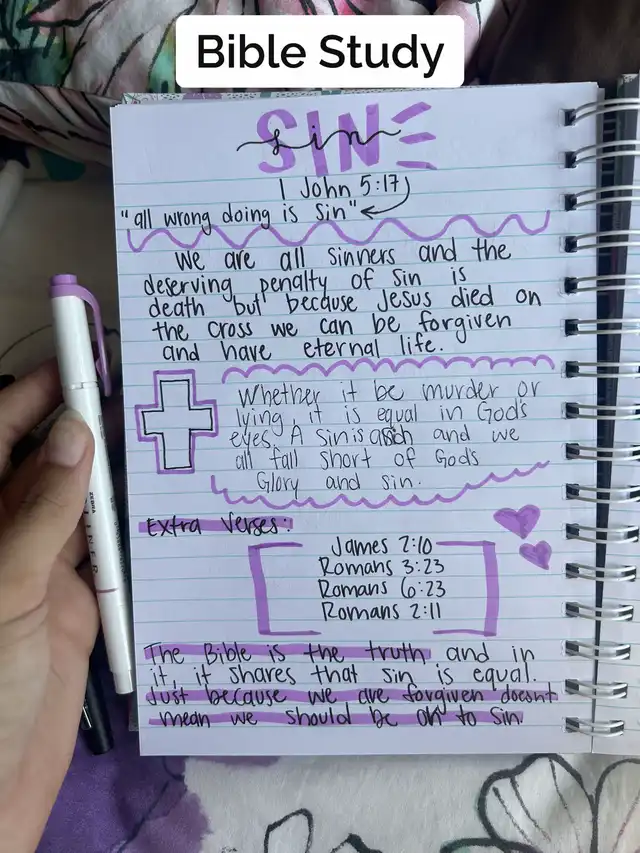 Bible Study
SIN
sin
1 John 5:17
"all wrong doing is Sin"
We are all sinners and the
deserving penalty of Sin is
death but because Jesus died on
the cross we can be forgiven
and have eternal life.
Whether it be murder or
lying it is equal in God's
eyes. A sin is a and we
all fall short of God's
Glory and sin.
Extra Verses:
James 2:10
Romans 3:23
Romans 6:23
Romans 2:11
The Bible is the truth and in
it, it shares that sin is equal.
Just because we are forgiven doesnt
mean we should be ok to Sin.
ZEBRA